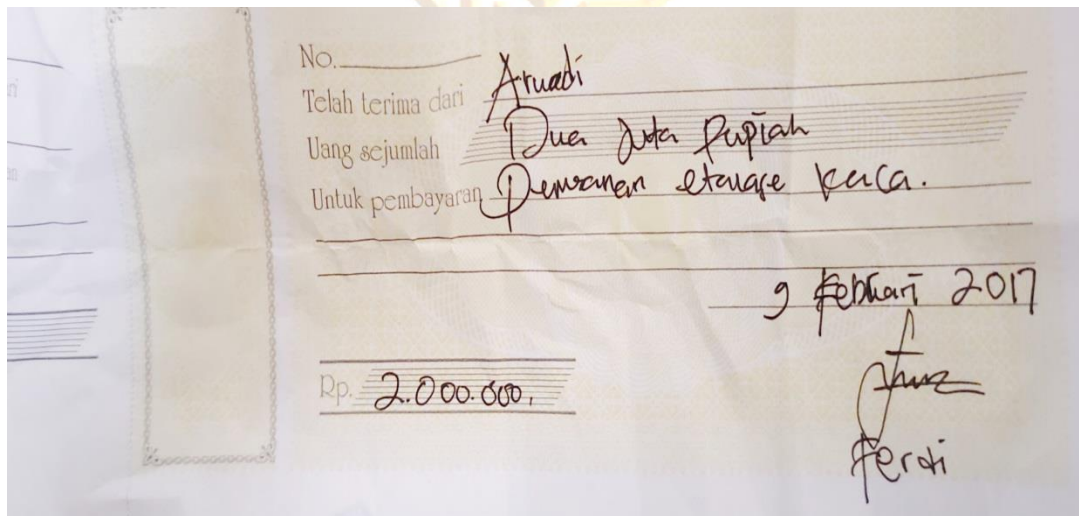 No.
Telah terima dari Aruadi
Uang sejumlah Dua Juta Rupiah
Untuk pembayaran Pemesanan etalase kaca.
9 Februari 2017
Rp. 2.000.000,
Ferdi